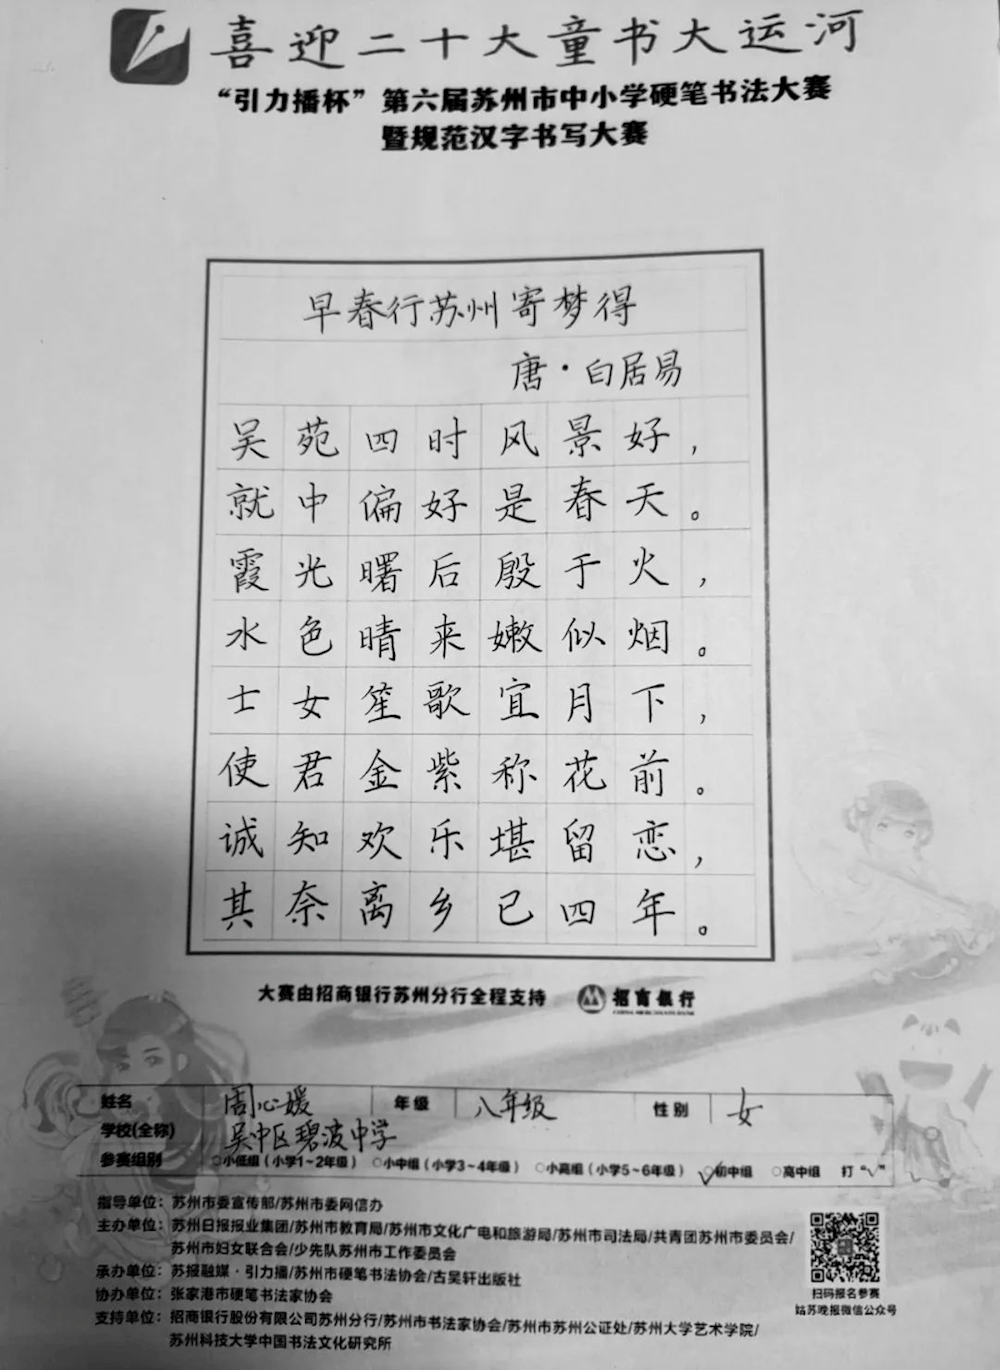 喜迎二十大童书大运河
“引力播杯”第六届苏州市中小学硬笔书法大赛
暨规范汉字书写大赛
早春行苏州寄梦得
唐·白居易
吴苑四时风景好，
就中偏好是春天。
霞光曙后殷于火，
水色晴来嫩似烟。
士女笙歌宜月下，
使君金紫称花前。
诚知欢乐堪留恋，
其奈离乡已四年。
大赛由招商银行苏州分行全程支持 招商银行
CHINA MERCHANTS BANK
姓名 周心媛 年级 八年级 性别 女
学校(全称) 吴中区碧波中学
参赛组别 ○小低组（小学1~2年级） ○小中组（小学3~4年级） ○小高组（小学5~6年级） ○初中组 ○高中组 打“√”
指导单位：苏州市委宣传部/苏州市委网信办
主办单位：苏州日报报业集团/苏州市教育局/苏州市文化广电和旅游局/苏州市司法局/共青团苏州市委员会/
苏州市妇女联合会/少先队苏州市工作委员会
承办单位：苏报融媒·引力播/苏州市硬笔书法协会/古吴轩出版社
协办单位：张家港市硬笔书法家协会
支持单位：招商银行股份有限公司苏州分行/苏州市书法家协会/苏州市苏州公证处/苏州大学艺术学院/
苏州科技大学中国书法文化研究所
扫码报名参赛
姑苏晚报微信公众号